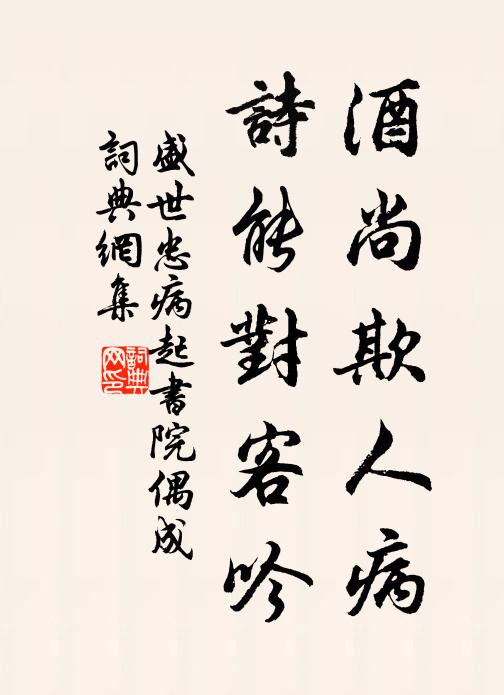 酒尚欺人病
詩能對客吟
盛世忠病起書院偶成
詞典網集
詞典
网印